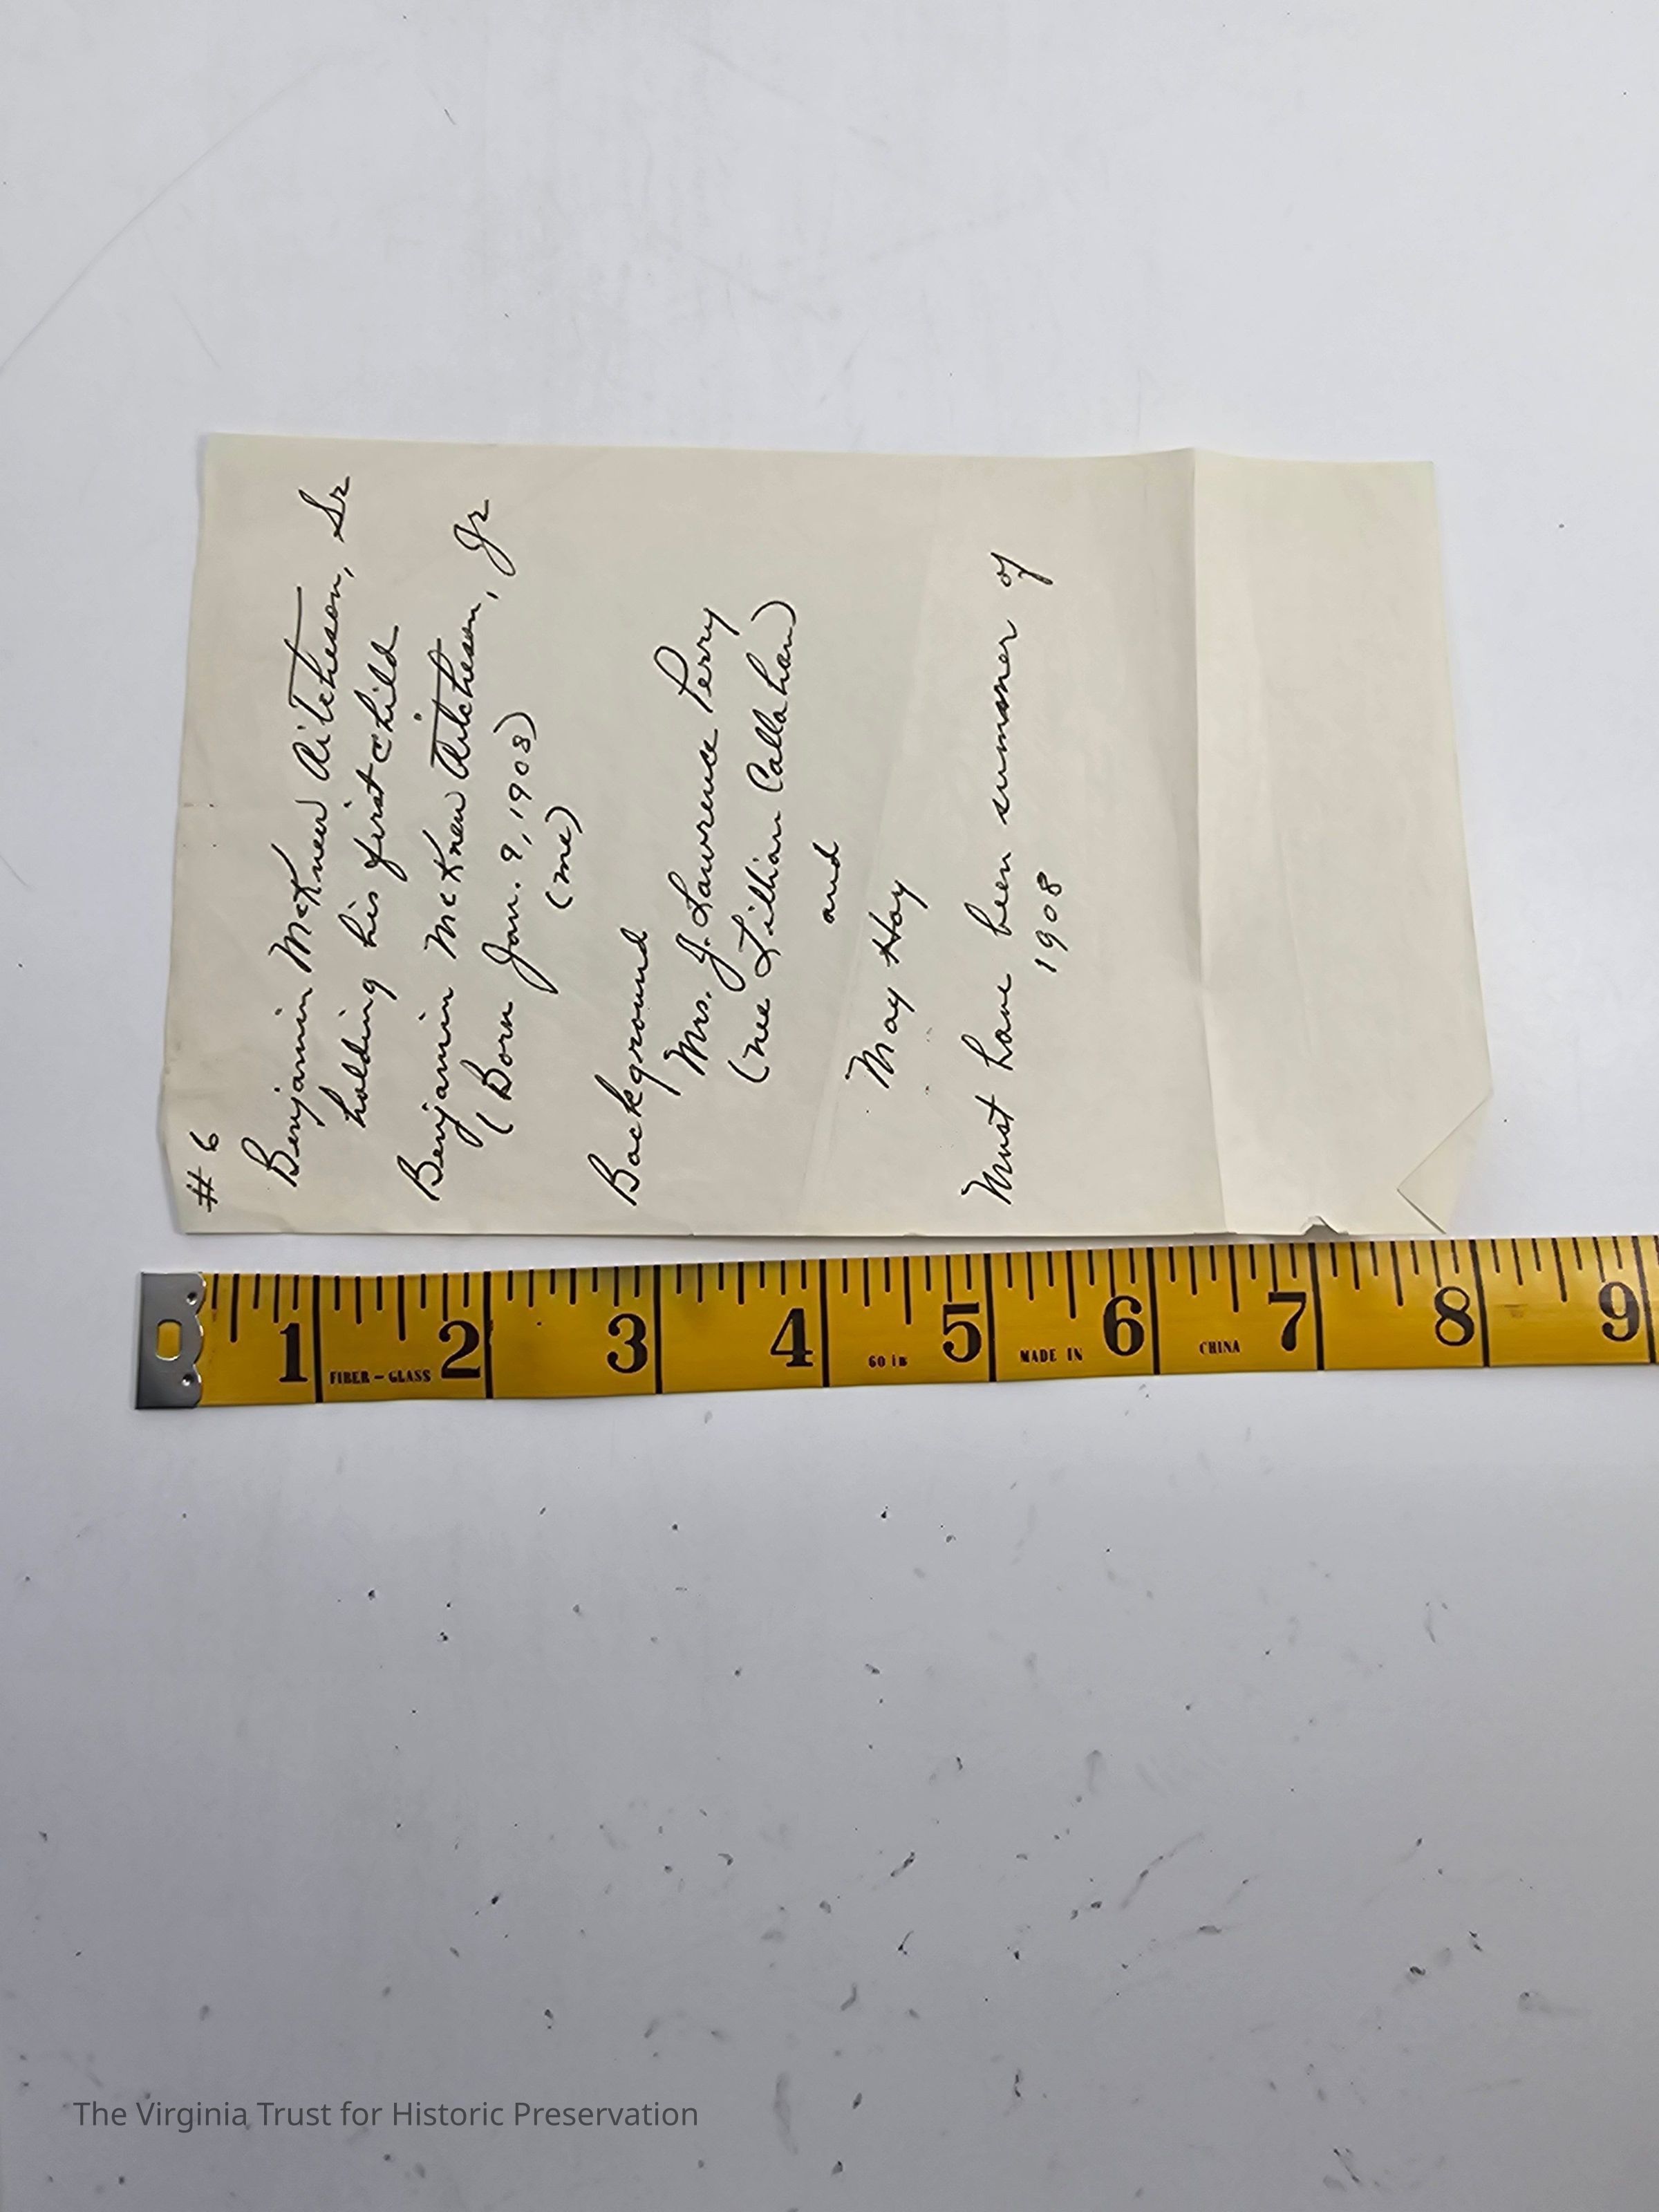 # 6
Benjamin McKnew Aitcheson, Sr
holding his first child
Benjamin McKnew Aitcheson, Jr
(Born Jan. 9, 1908)
(me)
Background
Mrs. J. Lawrence Perry
(nee Lillian Callahan)
and
May Hoy
Must have been summer of
1908
1 2 3 4 5 6 7 8 9
FIBER-GLASS 60 in MADE IN CHINA
The Virginia Trust for Historic Preservation